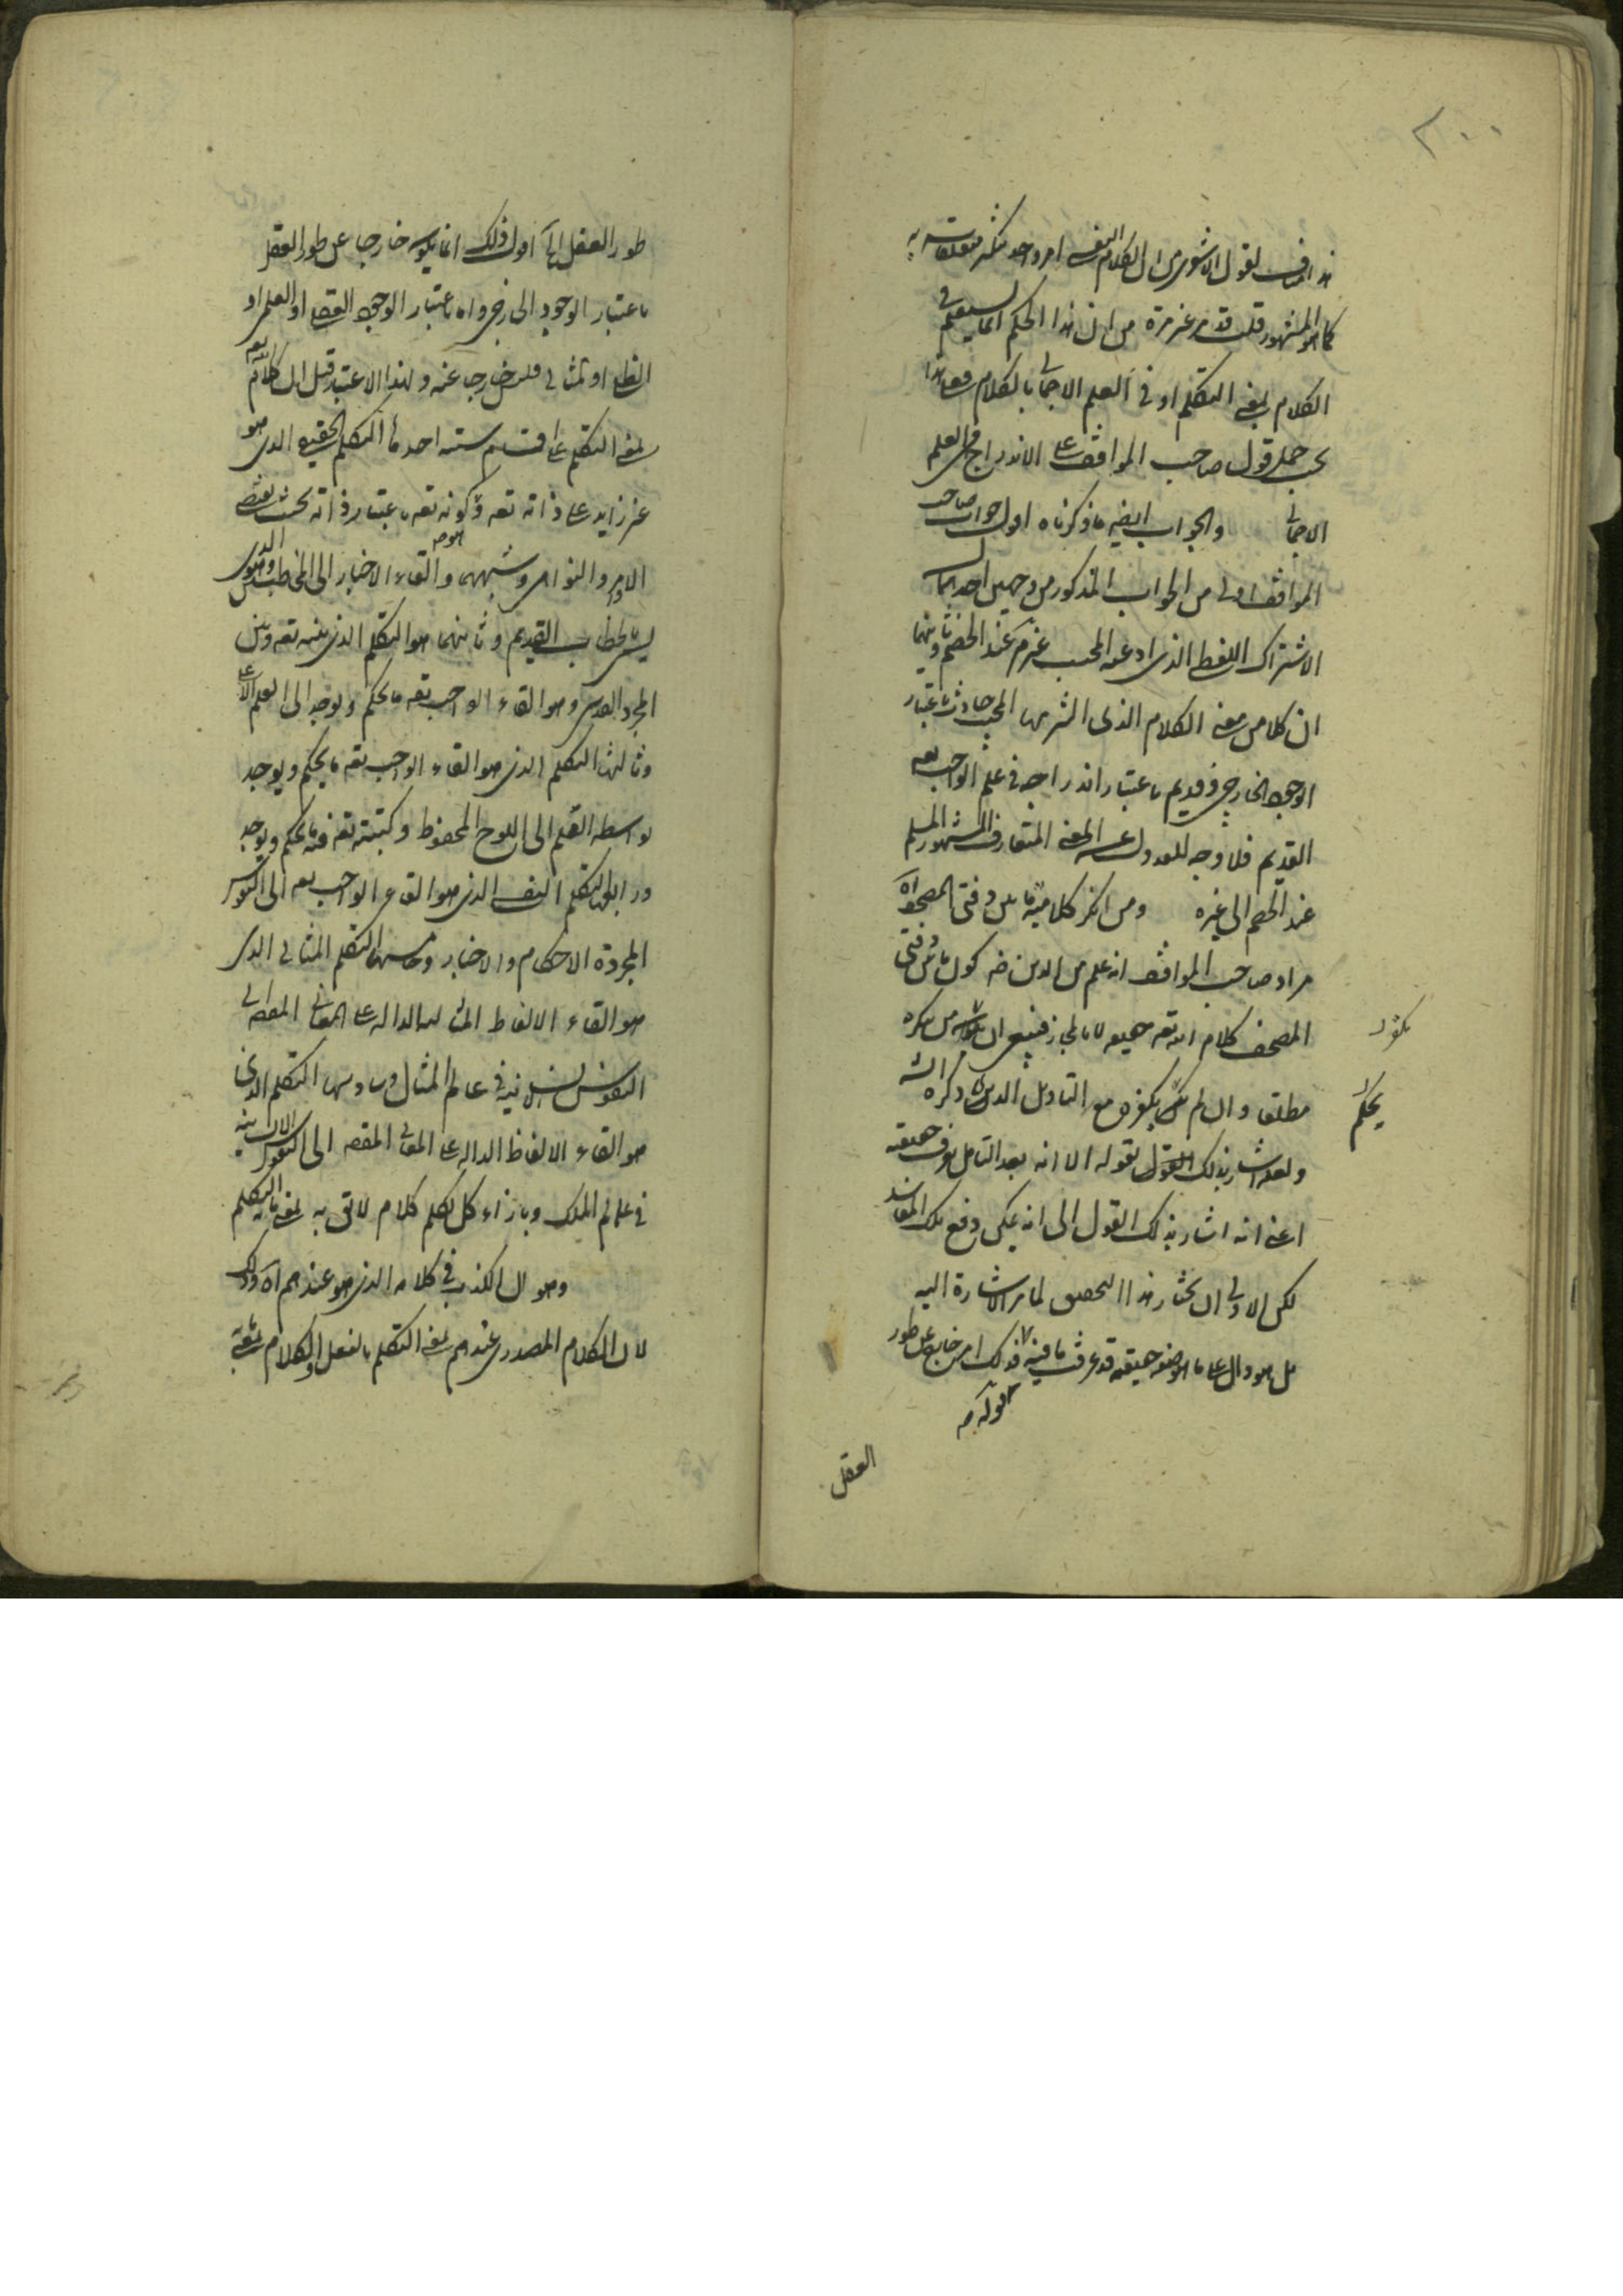 ٣٠٠
هذا مناف لقول الاشعرى من ان الكلام النفسى امر واحد متكثر متعلقاته
كما هو المشهور قلت قد مر غير مرة من ان هذا الحكم انما يستقيم فى
الكلام بمعنى التكلم او فى العلم الاجمالى بالكلام فعلى هذا
يجب حمل قول صاحب المواقف على الاندراج فى العلم
الاجمالى والجواب ايضه ما ذكرناه اقول جواب صاحب
المواقف اولى من الجواب المذكور من وجهين احدهما ان
الاشتراك اللفظى الذى ادعه المجيب غير مم عند الخصم وثانيهما
ان كلا من معنى الكلام الذى المجيب حادث باعتبار
الوجود الخارجى وقديم باعتبار اندراجه فى علم الواجب تعه
القديم فلا وجه للعدول عن المعنى المتعارف المشهور المسلم
عند الخصم الى غيره ومن انكر كلامية ما بين دفتى المصحف اه
مراد صاحب المواقف انه علم من الدين ضه كون ما بين دفتى
المصحف كلام الله تعه حقيقة لا بالمجاز فينبغى ان من ينكره
مطلقا وان لم يكفر مع التاويل الذى ذكره الشه
ولعله اشار بذلك القول بقوله الا انه بعد التامل يعرف حقيقته
اعنى انه اشار بذلك القول الى انه يمكن دفع تلك المفاسد
لكن الاولى ان يختار هذا التحقيق لما مر الاشارة اليه
بل هو دال على ما هو صفه حقيقه قد عرفت ما فيه قوله ذلك امر خارج عن طور
يكفر
يحكم
قوله صه
العقل
طور العقل اه اقول ذلك انما يكون خارجا عن طور العقل
باعتبار الوجود الخارجى واما باعتبار الوجود القضا او العلمى او
اللفظى او المثالى فليس خارجا عنه ولهذا الاعتبار قيل ان كلام الله تعه
بمعنى التكلم على اقسام ستة احدها التكلم الحقيقى الذى هو
غير زايد على ذاته تعه وكونه تعه باعتبار ذاته بحيث يقتضى
الاوامر والنواهى وشبههما والقاء الاخبار الى المخاطبين وهو الذى
يسمى بالخطاب القديم وثانيهما هو التكلم الذى بينه تعه وبين
المجرد القدسى وهو القاء الواجب تعه ما يحكم ويوجد الى القلم الاعلى
وثالثها التكلم الذى هو القاء الواجب تعه ما يحكم ويوجد
بواسطة القلم الى اللوح المحفوظ وكتبته تعه فيه ما يحكم ويوجد
ورابعها التكلم النفسى الذى هو القاء الواجب تعه الى النفوس
المجردة الاحكام والاخبار وخامسها التكلم المثالى الذى
هو القاء الالفاظ المثالية الدالة على المعانى المقصه الى
النفوس الانسانية فى عالم المثال وسادسها التكلم الذى
هو القاء الالفاظ الدالة على المعانى المقصه الى النفوس الانسانية
فى عالم الملك وبازاء كل تكلم كلام لائق به بمعنى ما به التكلم
وهو ان الكذب فى كلامه الذى هو عندهم اه وذلك
لان الكلام المصدرى عندهم بمعنى التكلم بالفعل والكلام بمعنى